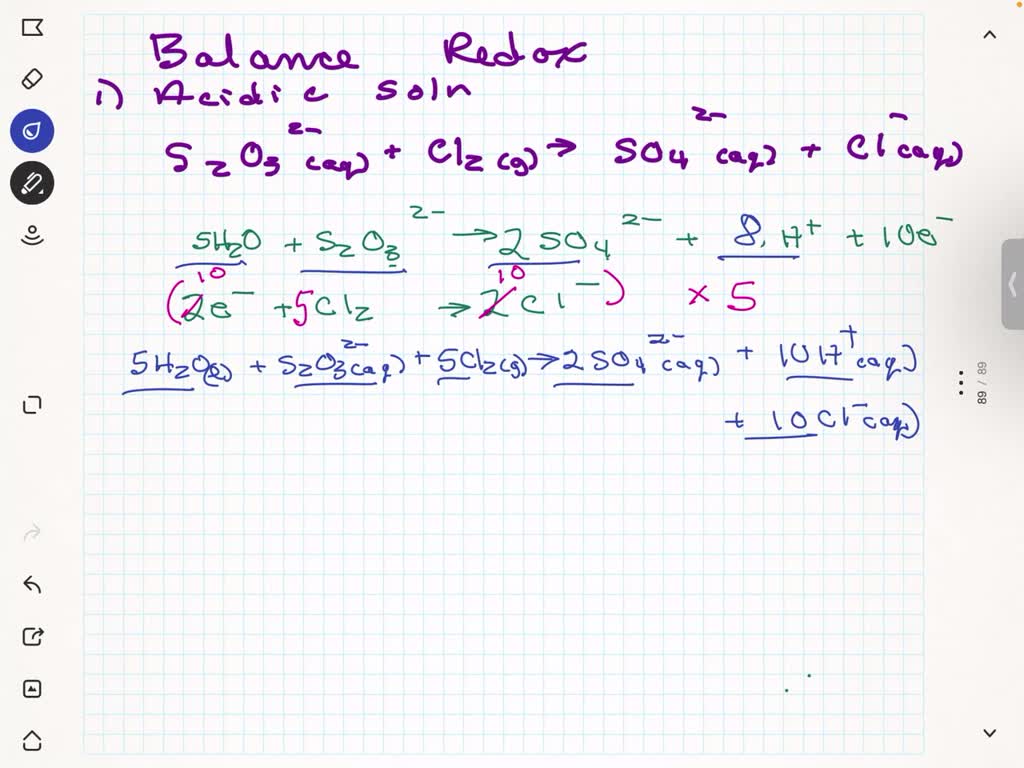 Balance Redox
1) Acidic soln
S2O3 2- (aq) + Cl2 (g) → SO4 2- (aq) + Cl- (aq)
5H2O + S2O3 2- → 2 SO4 2- + 8 H+ + 10e-
10 10
(2e- + 5Cl2 → 2Cl-) × 5
5H2O(l) + S2O3 2- (aq) + 5Cl2(g) → 2SO4 2- (aq) + 10H+ (aq)
+ 10Cl- (aq)
89 / 89